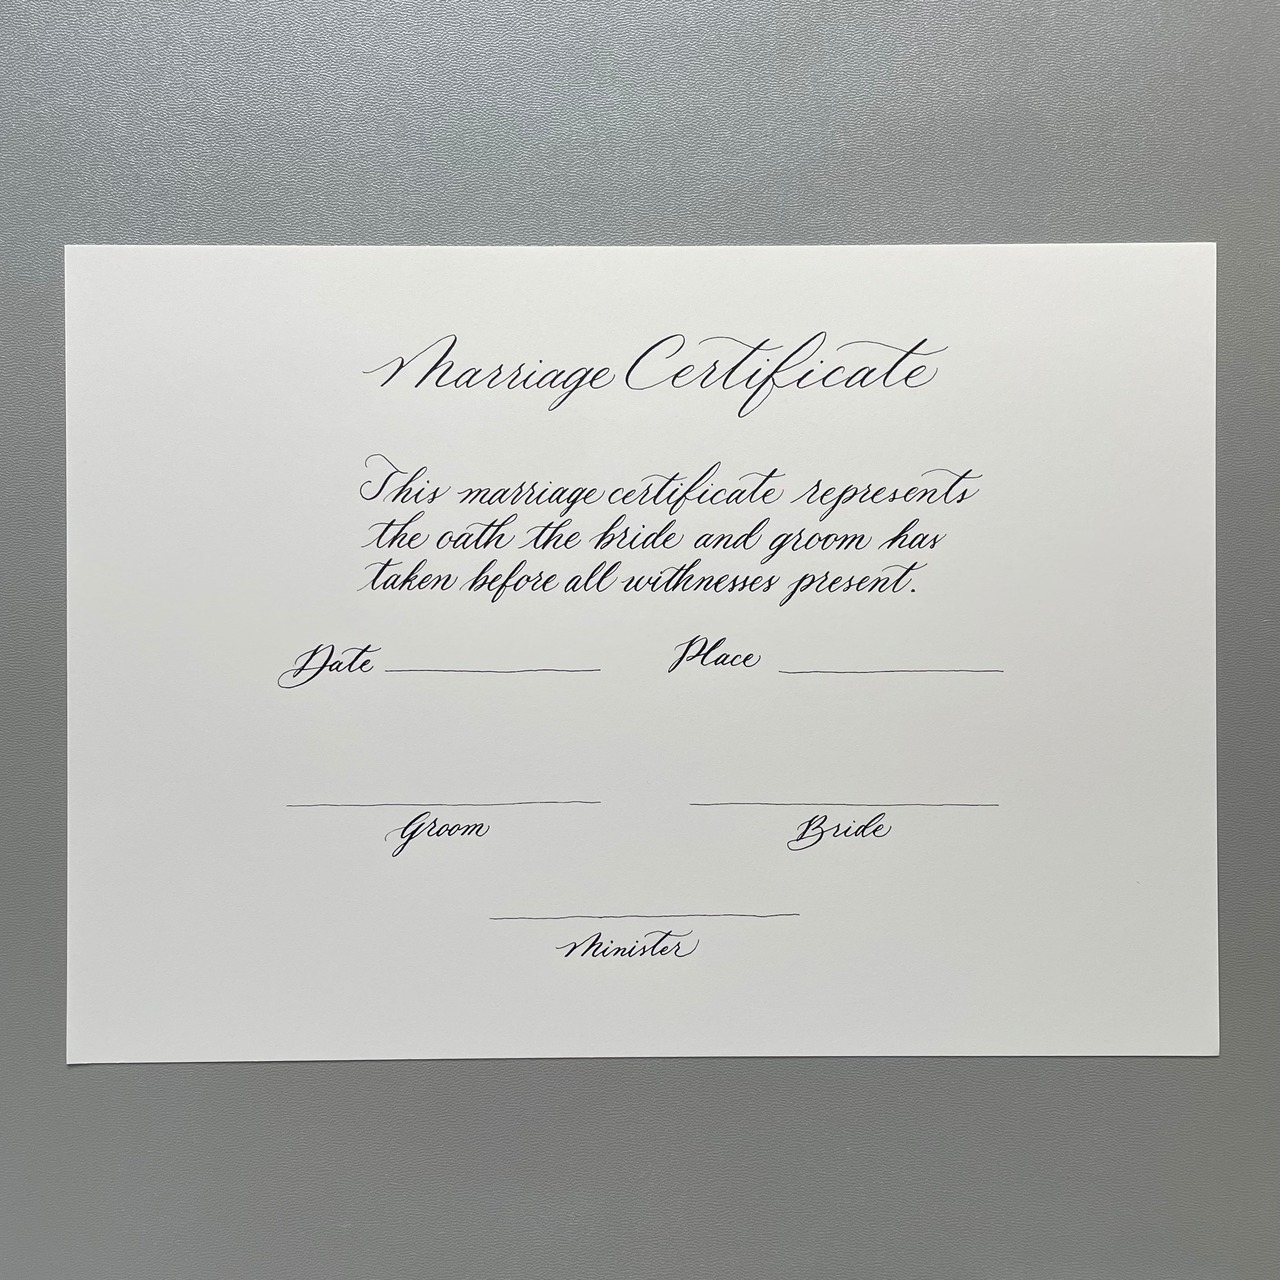 Marriage Certificate
This marriage certificate represents
the oath the bride and groom has
taken before all withnesses present.
Date Place
Groom Bride
Minister